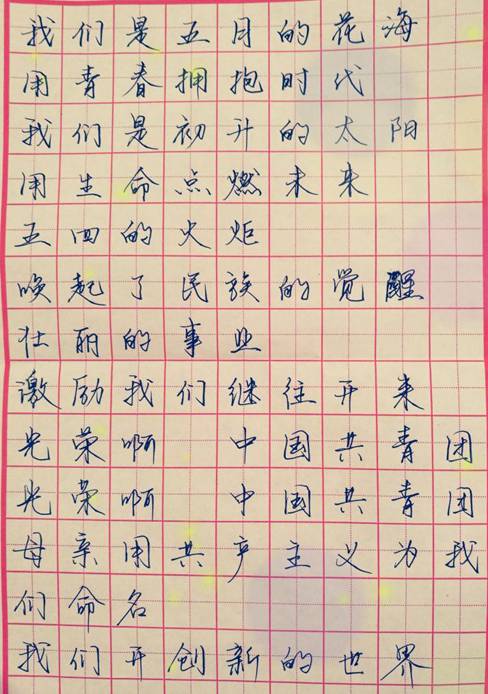 我们是五月的花海
用青春拥抱时代
我们是初升的太阳
用生命点燃未来
五四的火炬
唤起了民族的觉醒
壮丽的事业
激励我们继往开来
光荣啊 中国共青团
光荣啊 中国共青团
母亲用共产主义为我
们命名
我们开创新的世界